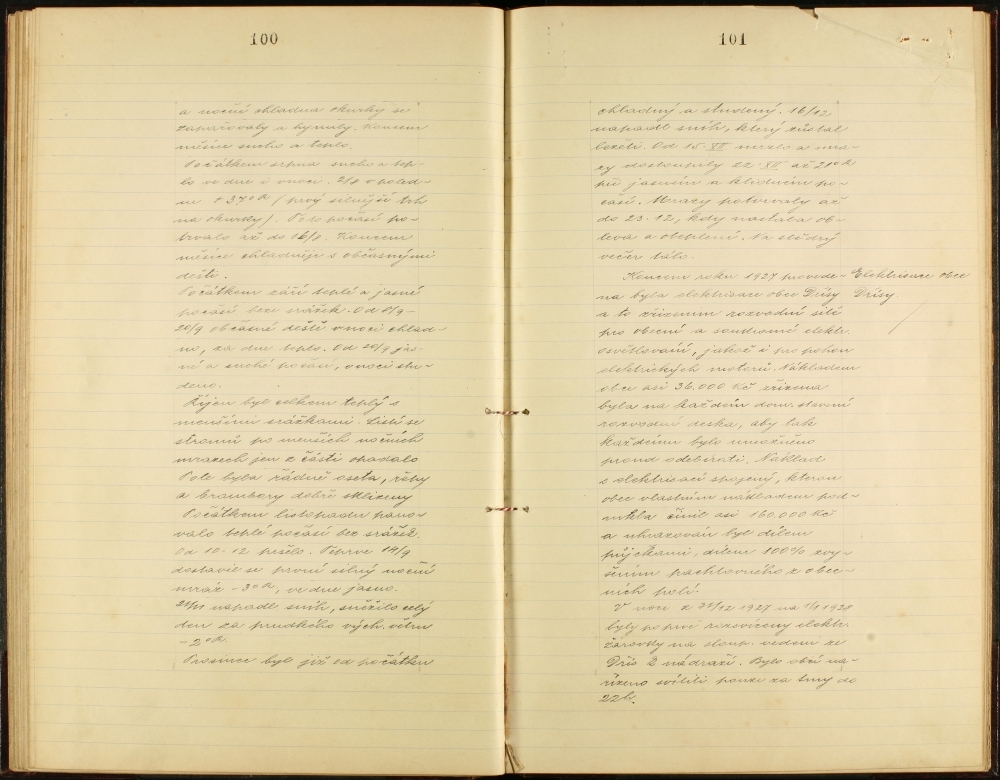 100
a noční chladna okurky se
zapařovaly a hynuly. Koncem
měsíce sucho a teplo.
Počátkem srpna sucho a tep-
lo ve dne i v noci. 2/8 v poled-
ne + 37°R / prvý silnější trh
na okurky /. Toto počasí po-
trvalo až do 16/8. Koncem
měsíce chladněji s občasnými
dešti.
Počátkem září teplé a jasné
počasí bez srážek. Od 8/9 -
20/9 občasné deště v noci chlad-
no, za dne teplo. Od 20/9 jas-
né a suché počasí, v noci stu-
deno.
Říjen byl celkem teplý s
menšími srážkami. Listí se
stromů po menších nočních
mrazech jen z části opadalo
Pole byla řádně oseta, řepy
a brambory dobře sklizeny
Počátkem listopadu pano-
valo teplé počasí bez srážek.
Od 10-12 pršelo. Teprve 14/9
dostavil se první silný noční
mráz - 3°R, ve dne jasno.
21/11 napadl sníh, sněžilo celý
den za prudkého vých. větru
- 2°R.
Prosinec byl již od počátku
101
chladný a studený. 16/12
napadl sníh, který zůstal
ležeti. Od 15. XII mrzlo a mra-
zy dostoupily 22. XII. až 21°R
při jasném a klidném po-
časí. Mrazy potrvaly až
do 23. 12, kdy nastala ob-
leva a oteplení. Na štědrý
večer tálo.
Koncem roku 1927 provede-
na byla elektrisace obce Dřísy
a to zřízením rozvodní sítě
pro obecní a soukromé elektr.
osvětlování, jakož i pro pohon
elektrických motorů. Nákladem
obce asi 36.000 Kč zřízena
byla na každém dom. stavení
rozvodní deska, aby tak
každému bylo umožněno
proud odebírati. Náklad
s elektrisací spojený, kterou
obec vlastním nákladem pod-
nikla činil asi 160.000 Kč
a uhrazován byl dílem
půjčkami, dílem 100% zvý-
šením pachtovného z obec-
ních polí.
V noci z 31/12 1927 na 1/1 1928
byly po prvé rozsvíceny elektr.
žárovky na sloup. vedení ze
Dřís k nádraží. Bylo obcí na-
řízeno svítiti pouze za tmy do
22h.
Elektrisace obce
Dřísy.